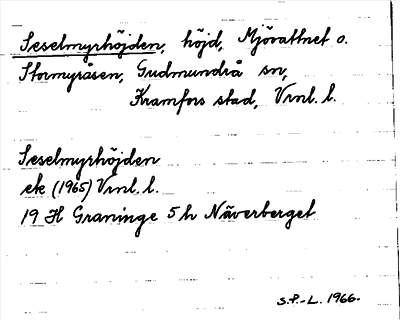 Seselmyrhöjden, höjd, Mjövattnet o.
Stormyråsen, Gudmundrå sn,
Kramfors stad, Vrnl. l.
Seselmyrhöjden
ek (1965) Vrnl. l.
19 H Graninge 5 h Näverberget
S.P.-L. 1966.